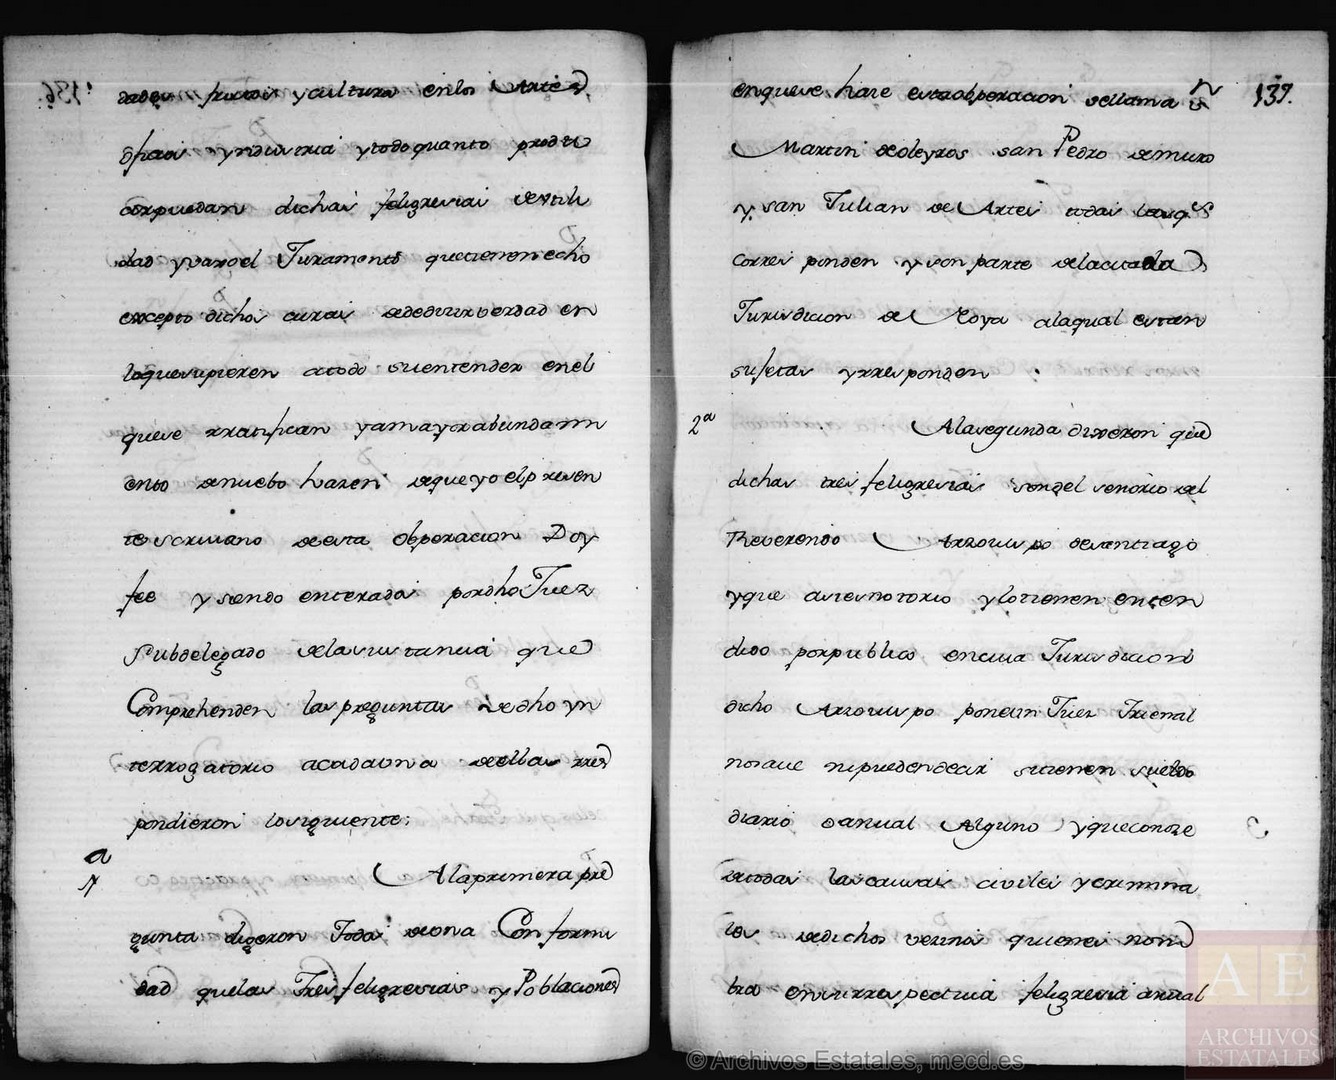 dades frutos y cultura en los Artes
oficios yndustria y todo quanto produ
cer puedan dichas feligresias de utili
dad y vaxo el Juramento que tienen echo
excepto dichos curas de dezir verdad en
lo que supieren a todo su entender en el
que se rratifican y a mayor abundami
ento de nuebo hazen de que yo el presen
te scrivano de esta obperacion Doy
fee y siendo enterados por dho Juez
Subdelegado de la sustancia que
Comprehenden las preguntas de dho yn
terrogatorio a cada una de ellas rres
pondieron lo siguiente:
1a
A la primera pre
gunta digeron Todos de una Conformi
dad que las Tres feligresias y Poblaciones
137.
en que se haze esta obperacion se llama Sn
Martin de oleyros san Pedro de muro
y san Julian de Artes todas las qs
corresponden y son parte de la citada
Jurisdicion de Noya a la qual estan
sujetas y rresponden
2a
A la segunda dixeron que
dichas tres feligresias son del señorio del
Reverendo Arzovispo de santiago
y que asi es notorio y lo tienen enten
dido por publico en cuia Jurisdicion
dicho Arzovispo pone un Juez Trienal
no save ni pueden dezir si tienen sueldo
diario o anual Alguno y que conoze
de todas las causas civiles y crimina
les de dichos vezinos quienes nom
bra en su rrespectiva feligresia anual
© Archivos Estatales, mecd.es
AE
ARCHIVOS
ESTATALES